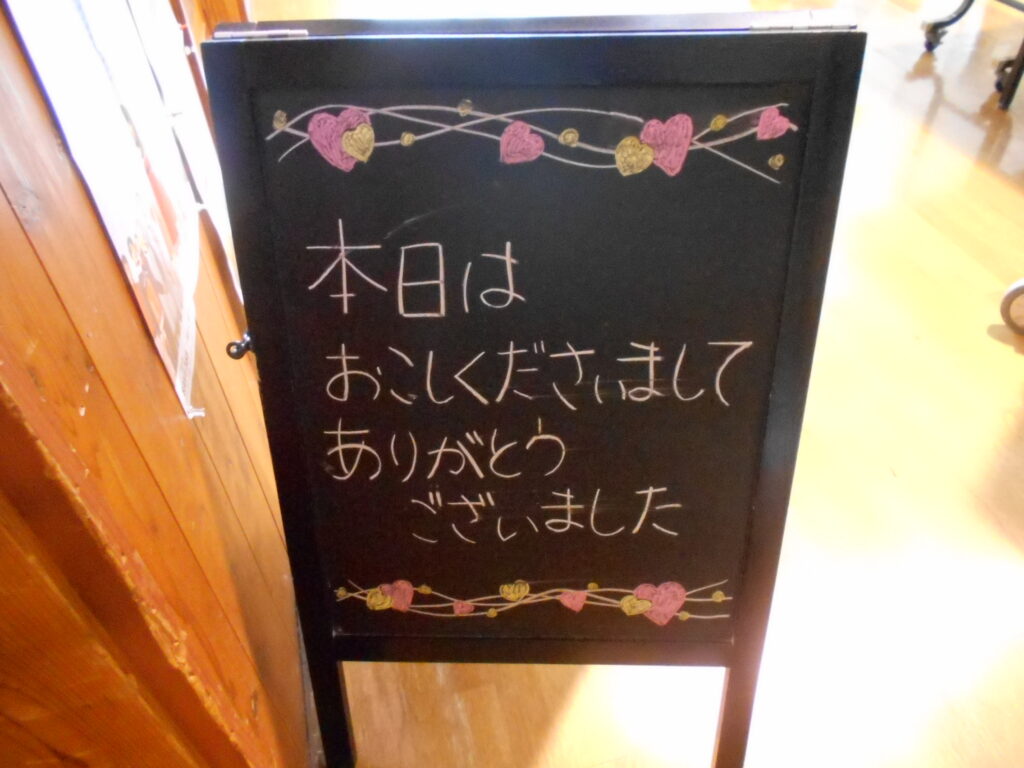 本日は
おこしくださいまして
ありがとう
ございました